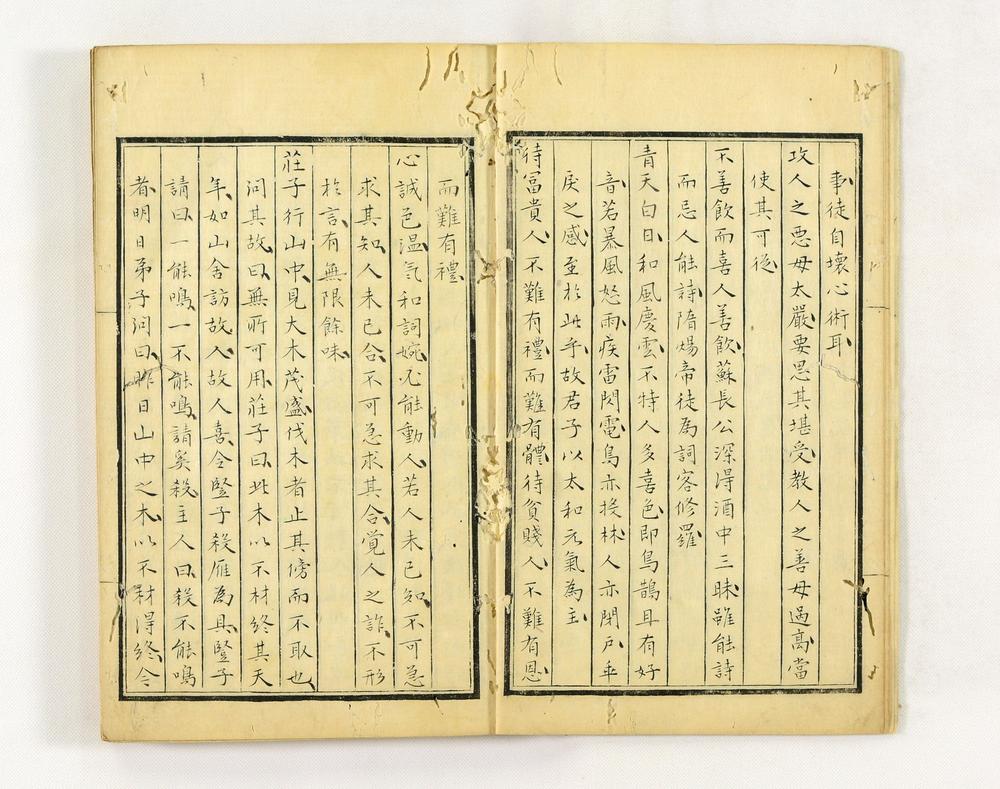 事徒自壞心術耳
攻人之惡毋太嚴要思其堪受教人之善毋過高當
使其可從
不善飲而喜人善飲蘇長公深得酒中三昧雖能詩
而忌人能詩隋煬帝徒為詞客修羅
青天白日和風慶雲不特人多喜色即鳥鵲且有好
音若暴風怒雨疾雷閃電鳥亦投林人亦閉戶乖
戾之感至於此乎故君子以太和元氣為主
待冨貴人不難有禮而難有體待貧賤人不難有恩
而難有禮
心誠色温氣和詞婉必能動人若人未已知不可急
求其知人未已合不可急求其合覺人之詐不形
於言有無限餘味
莊子行山中見大木茂盛伐木者止其傍而不取也
问其故曰無所可用莊子曰此木以不材終其天
年如山舍訪故人故人喜令豎子殺雁為具豎子
請曰一能鳴一不能鳴請奚殺主人曰殺不能鳴
者明日弟子问曰昨日山中之木以不材得終今